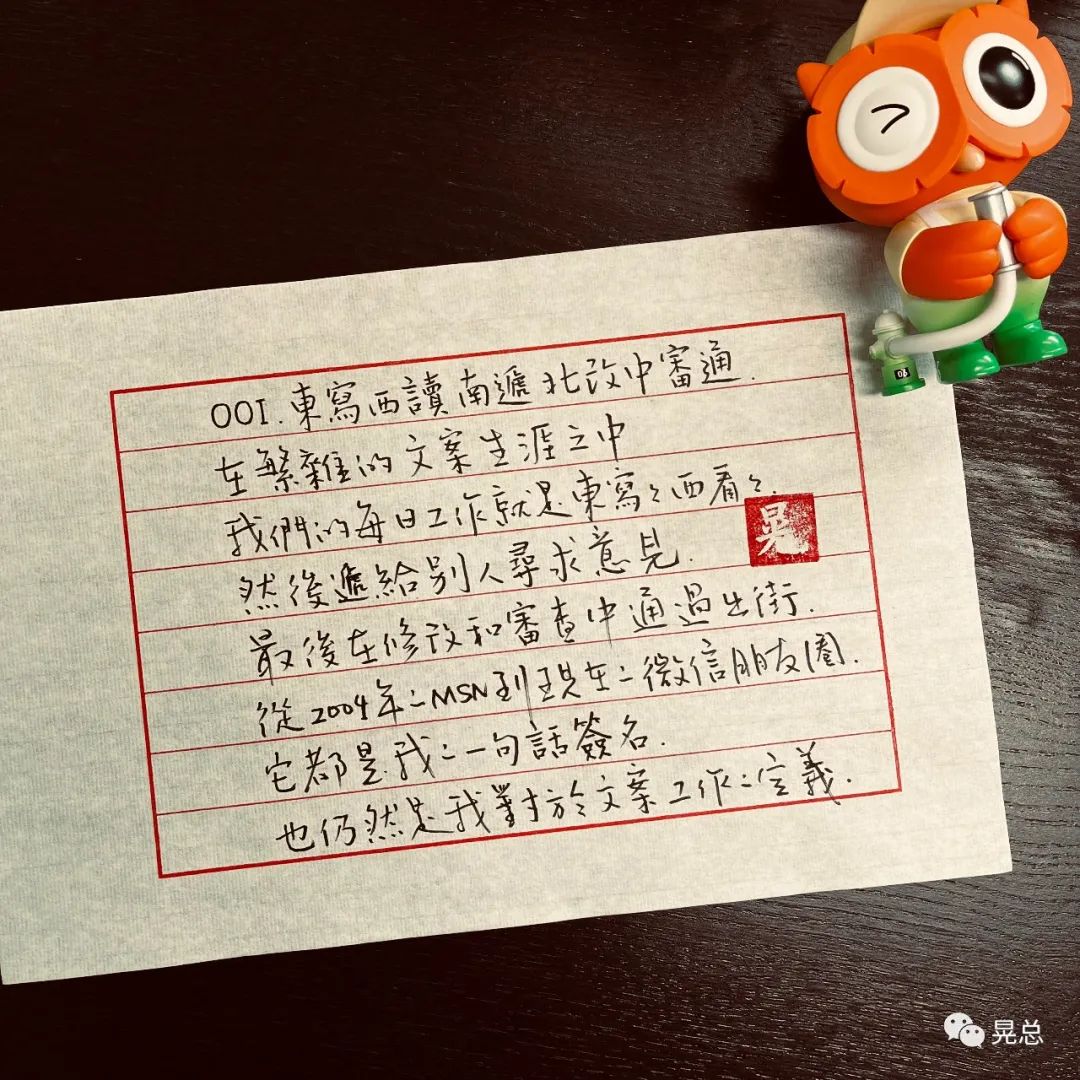 001.東寫西讀南遞北改中審通.
在繁雜的文案生涯之中
我們的每日工作就是東寫々西看々.
然後遞給別人尋求意見.
最後在修改和審查中通過出街.
從2004年:MSN到現在:微信朋友圈.
它都是我:一句話簽名.
也仍然是我對於文案工作:定義.
晃
03
晃总